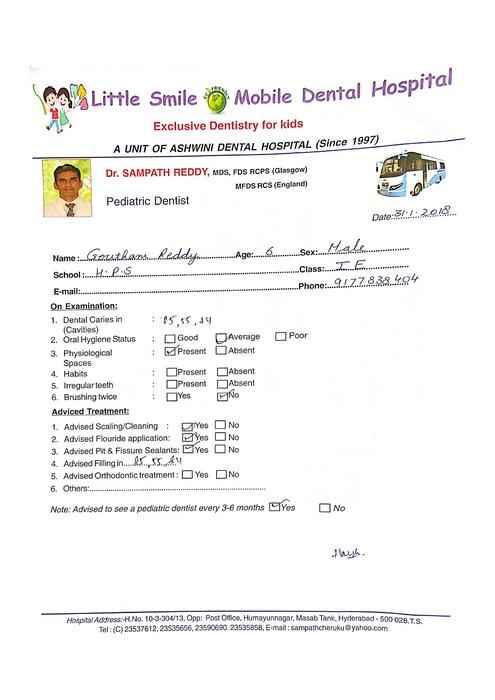 Little Smile Mobile Dental Hospital
Exclusive Dentistry for kids
A UNIT OF ASHWINI DENTAL HOSPITAL (Since 1997)
Dr. SAMPATH REDDY, MDS, FDS RCPS (Glasgow)
MFDS RCS (England)
Pediatric Dentist
Date: 31.1.2018
Name: Goutham Reddy Age: 6 Sex: Male
School: H.P.S Class: I F
E-mail: Phone: 9177838404
On Examination:
1. Dental Caries in : 85, 55, 24
(Cavities)
2. Oral Hygiene Status : Good Average Poor
3. Physiological : Present Absent
Spaces
4. Habits : Present Absent
5. Irregular teeth : Present Absent
6. Brushing twice : Yes No
Adviced Treatment:
1. Advised Scaling/Cleaning : Yes No
2. Advised Flouride application: Yes No
3. Advised Pit & Fissure Sealants: Yes No
4. Advised Filling in 85, 55, 24
5. Advised Orthodontic treatment : Yes No
6. Others:
Note: Advised to see a pediatric dentist every 3-6 months Yes No
Hospital Address:-H.No. 10-3-304/13, Opp: Post Office, Humayunnagar, Masab Tank, Hyderabad - 500 028.T.S.
Tel : (C) 23537612, 23535656, 23590690 23535858, E-mail : sampathcheruku@yahoo.com